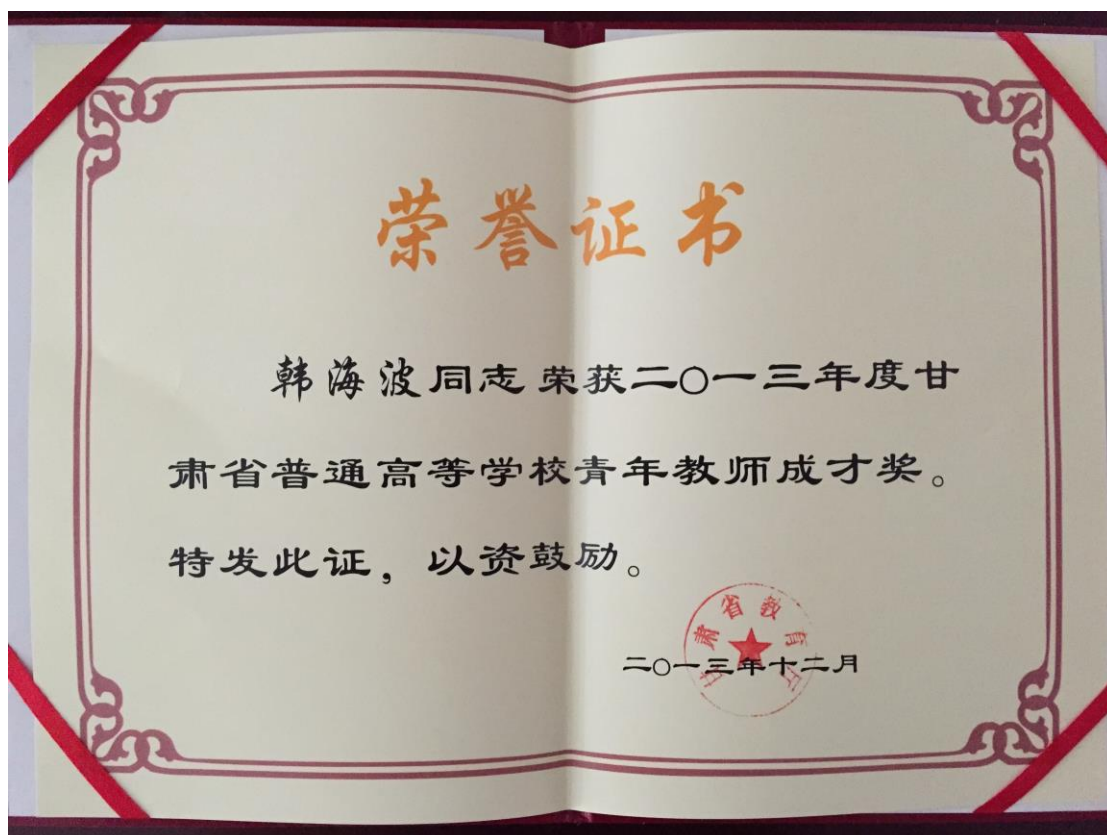 荣誉证书
韩海波同志荣获二〇一三年度甘
肃省普通高等学校青年教师成才奖。
特发此证，以资鼓励。
甘肃省教育厅
二〇一三年十二月